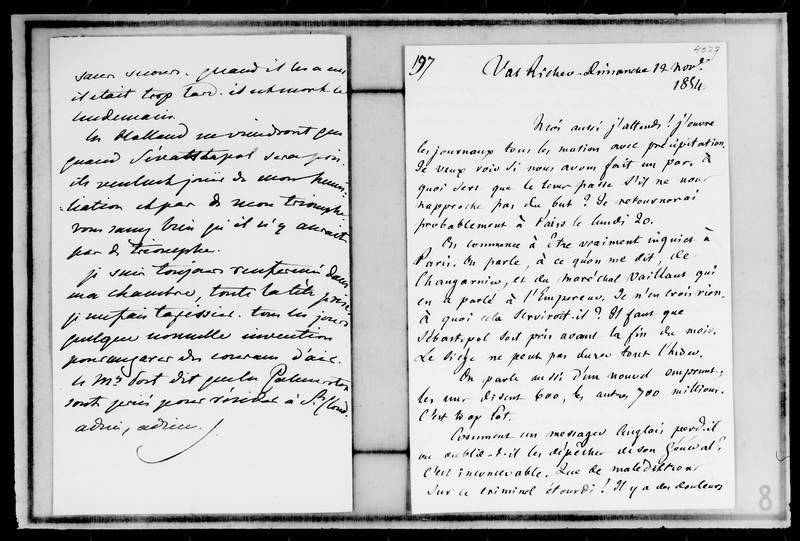 sans secours. quand il les a eus
il était trop tard. il est mort le
lendemain.
les Holland ne viendront que
quand Sévastapol sera pris.
ils veulent jouir de mon humi-
liation et pas de mon triomphe
vous savez bien qu'il n'y aurait
pas de triomphe.
je suis toujours renfermée dans
ma chambre, toute la tête prise
je me fais tapisser. tous les jours
quelque nouvelle invention
pour engager des courans d'air.
le Mg Post dit que les Palmerston
sont priés pour résider à St Cloud.
adieu, adieu.
197
4027
Val Richer - Dimanche 12 Nov.
1854
Moi aussi j'attends ! j'ouvre
les journaux tous les matins avec précipitation.
Je veux voir si nous avons fait un pas. A
quoi sert que le tems passe s'il ne nous
rapproche pas du but ? Je retournerai
probablement à Paris le lundi 20.
On commence à être vraiment inquiet à
Paris. On parle, à ce qu'on me dit, de
Changarnier, et du maréchal Vaillant qui
en a parlé à l'Empereur. Je n'en crois rien.
à quoi cela serviroit-il ? Il faut que
Sébastopol soit pris avant la fin du mois.
Le siége ne peut pas durer tout l'hiver.
On parle aussi d'un nouvel emprunt ;
les uns disent 600, les autres 700 millions.
C'est trop tôt.
Comment un messager Anglais perd-il
ou oublie-t-il les dépêches de son Général ?
C'est inconcevable. Que de malédictions
sur ce criminel étourdi ! Il y a des douleurs
8